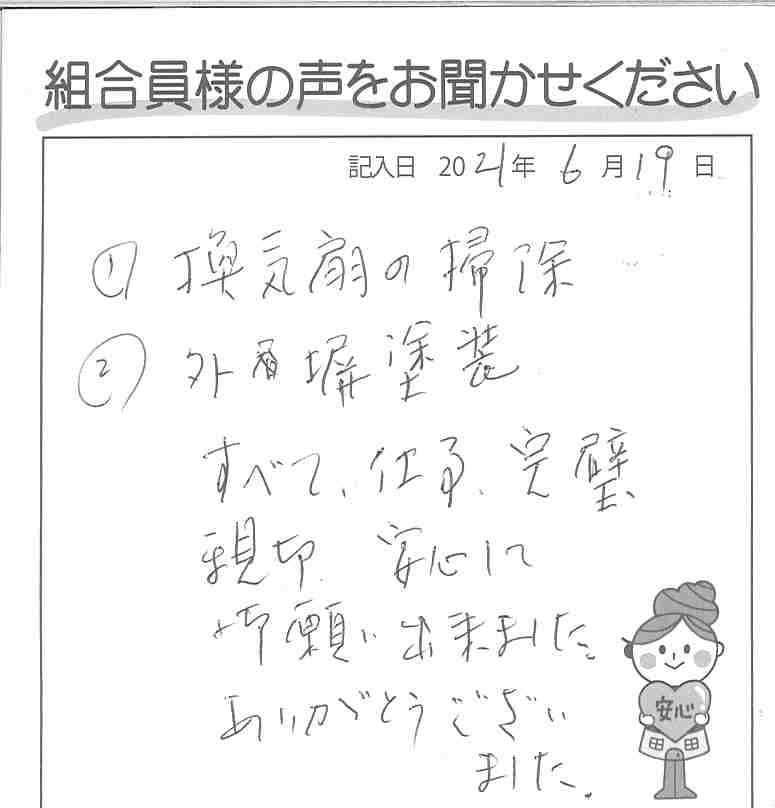 組合員様の声をお聞かせください
記入日 2021年 6月19日
① 換気扇の掃除
② 外 塀塗装
すべて、仕事、完璧、
親切 安心して
御願い出来ました。
ありがとうござい
ました。
安心